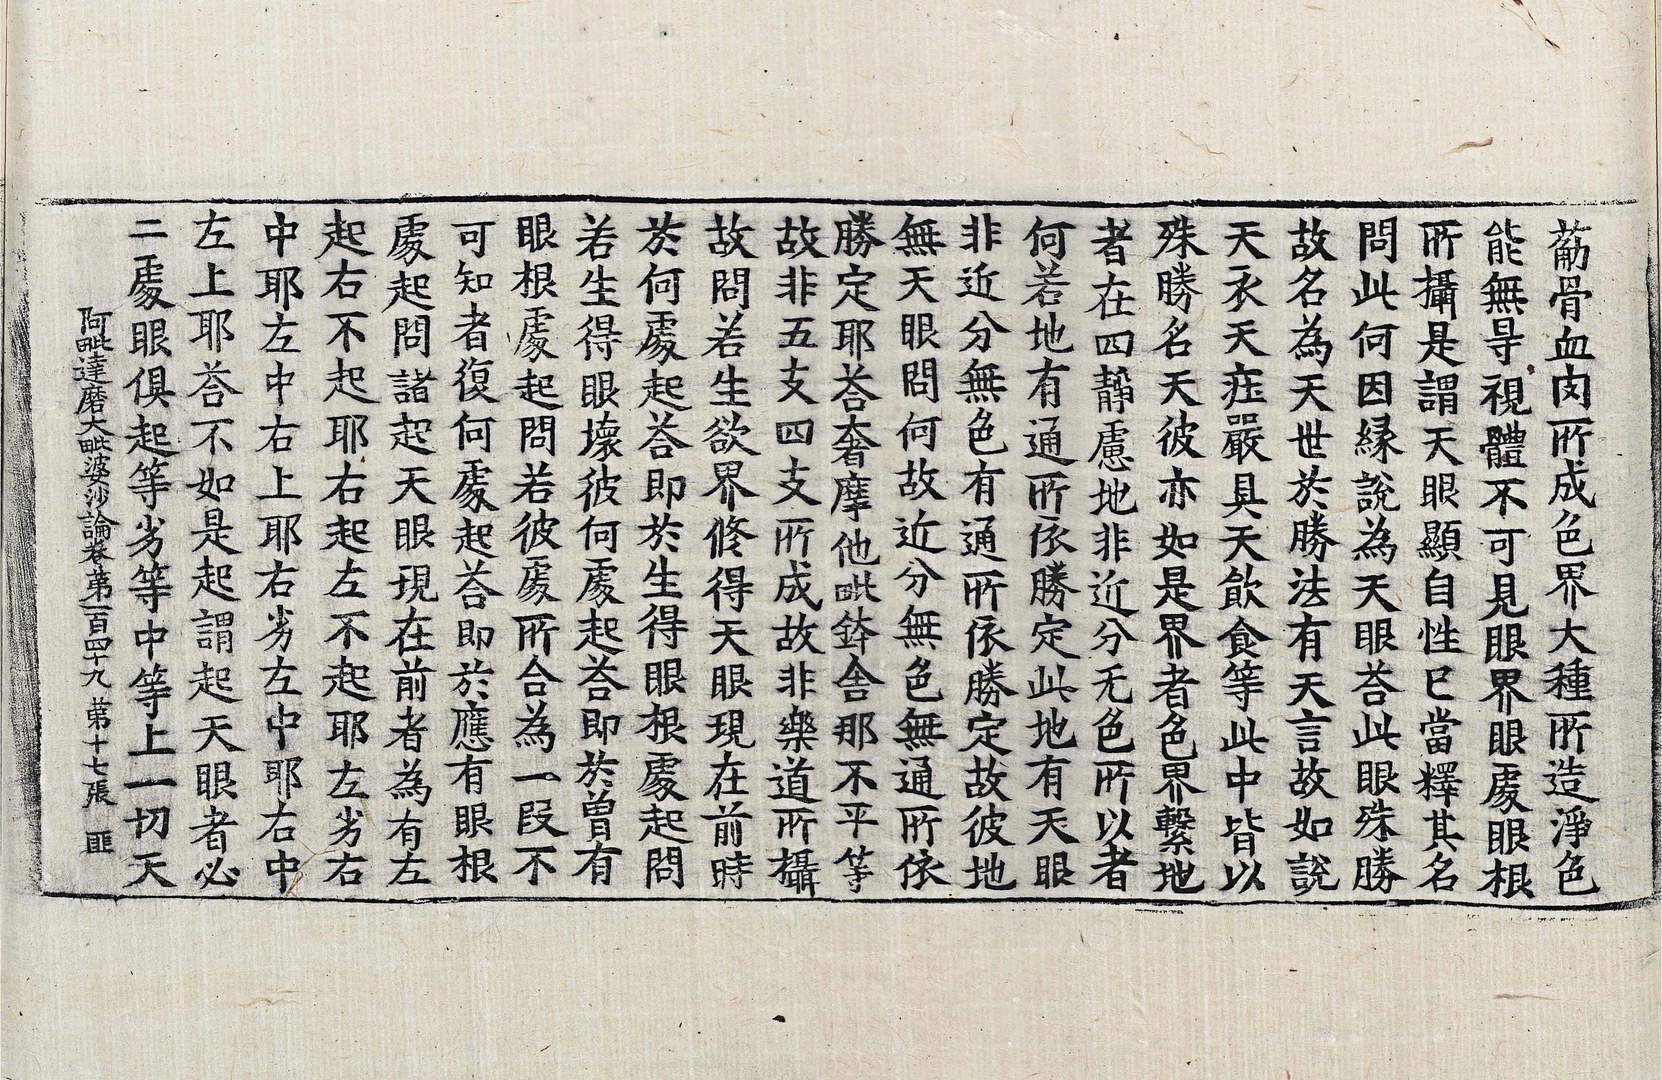 葡骨血肉所成色界大種所造淨色
能無㝵視體不可見眼界眼處眼根
所攝是謂天眼顯自性已當釋其名
問此何因緣說為天眼荅此眼殊勝
故名為天世於勝法有天言故如說
天衣天莊嚴具天飲食等此中皆以
殊勝名天彼亦如是界者色界繫地
者在四靜慮地非近分无色所以者
何若地有通所依勝定此地有天眼
非近分無色有通所依勝定故彼地
無天眼問何故近分無色無通所依
勝定耶荅奢摩他毗鉢舍那不平等
故非五支四支所成故非樂道所攝
故問若生欲界修得天眼現在前時
於何處起荅即於生得眼根處起問
若生得眼壞彼何處起荅即於曾有
眼根處起問若彼處所合為一段不
可知者復何處起荅即於應有眼根
處起問諸起天眼現在前者為有左
起右不起耶右起左不起耶左劣右
中耶左中右上耶右劣左中耶右中
左上耶荅不如是起謂起天眼者必
二處眼俱起等劣等中等上一切天
阿毗達磨大毗婆沙論卷第一百四十九 第十七張 匪